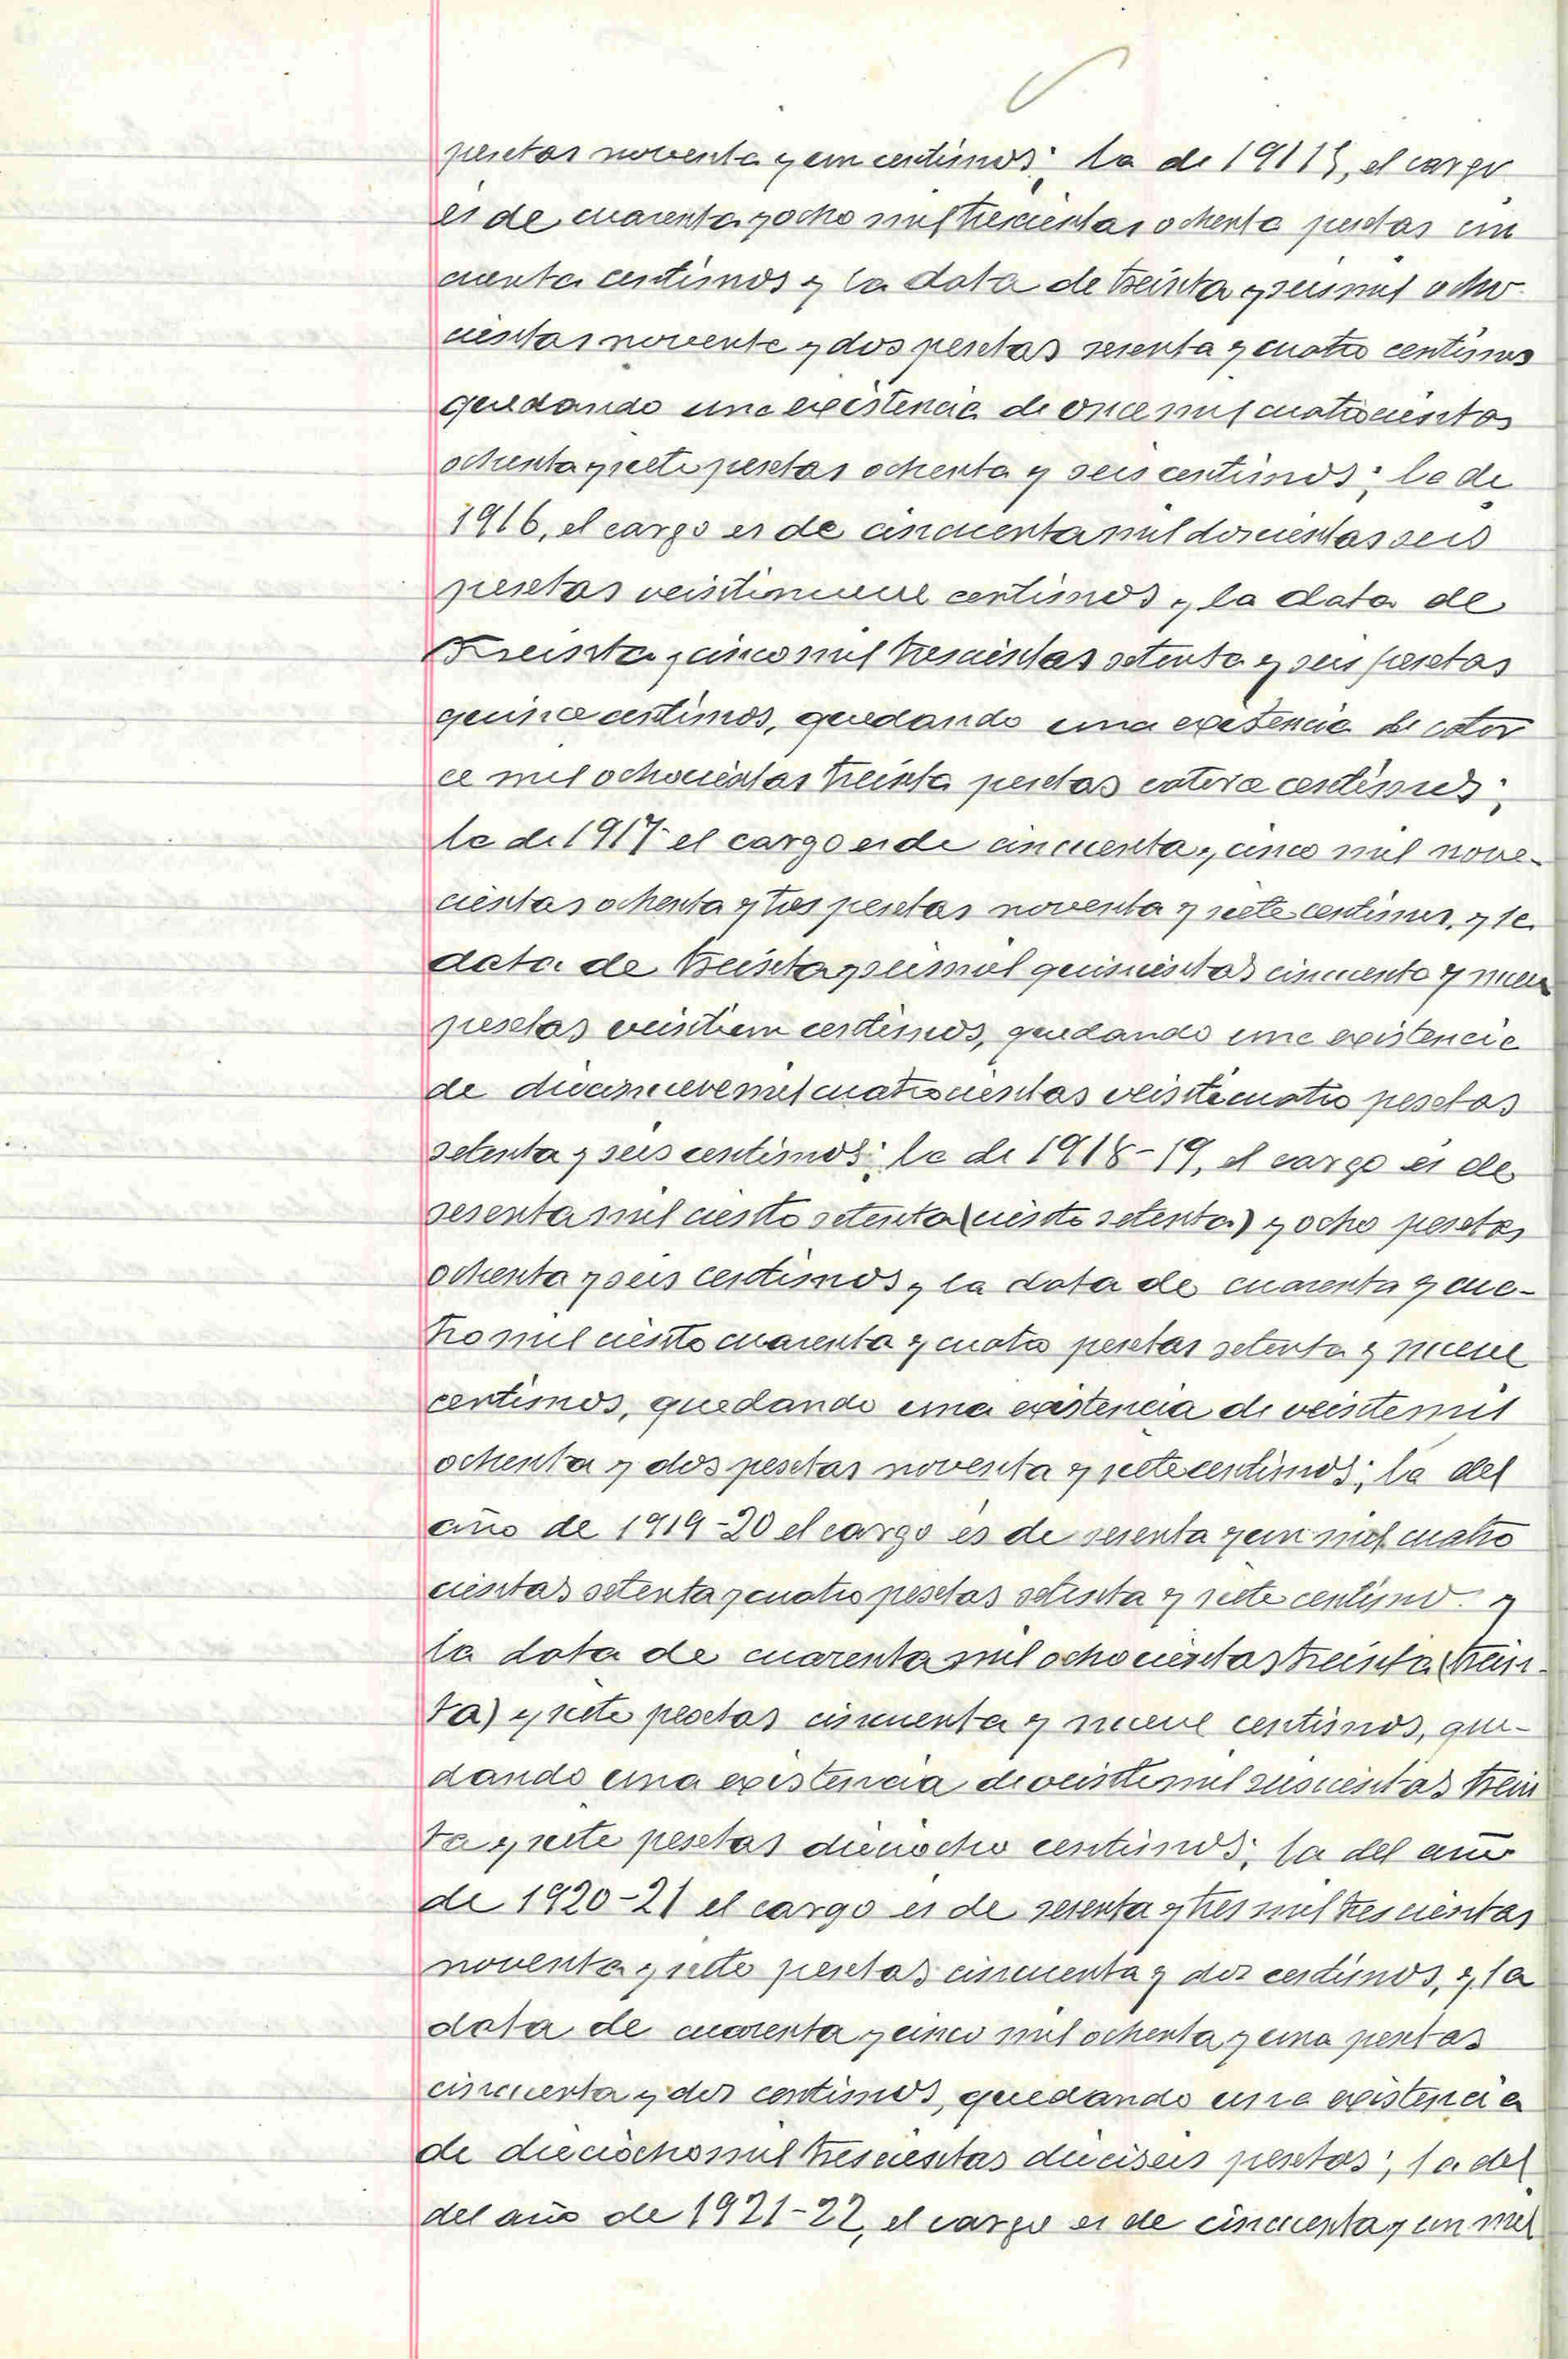 pesetas noventa y un centimos; la de 1915, el cargo
es de cuarenta y ocho mil trescientas ochenta pesetas cin
cuenta centimos y la data de treinta y seis mil ocho-
cientas noventa y dos pesetas sesenta y cuatro centimos
quedando una existencia de once mil cuatrocientas
ochenta y siete pesetas ochenta y seis centimos; la de
1916, el cargo es de cincuenta mil doscientas seis
pesetas veintinueve centimos y la data de
treinta y cinco mil trescientas setenta y seis pesetas
quince centimos, quedando una existencia de cator
ce mil ochocientas treinta pesetas catorce centimos;
la de 1917 el cargo es de cincuenta y cinco mil nove-
cientas ochenta y tres pesetas noventa y siete centimos, y la
data de treinta y seis mil quinientas cincuenta y nueve
pesetas veintiun centimos, quedando una existencia
de diecinueve mil cuatrocientas veinticuatro pesetas
setenta y seis centimos; la de 1918-19, el cargo es de
sesenta mil ciento setenta (ciento setenta) y ocho pesetas
ochenta y seis centimos y la data de cuarenta y cua-
tro mil ciento cuarenta y cuatro pesetas setenta y nueve
centimos, quedando una existencia de veinte mil
ochenta y dos pesetas noventa y siete centimos; la del
año de 1919-20 el cargo es de sesenta y un mil cuatro
cientas setenta y cuatro pesetas setenta y siete centimos y
la data de cuarenta mil ochocientas treinta (trein-
ta) y siete pesetas cincuenta y nueve centimos, que-
dando una existencia de veinte mil seiscientas trein
ta y siete pesetas dieciocho centimos; la del año
de 1920-21 el cargo es de sesenta y tres mil trescientas
noventa y siete pesetas cincuenta y dos centimos, y la
data de cuarenta y cinco mil ochenta y una pesetas
cincuenta y dos centimos, quedando una existencia
de dieciocho mil trescientas dieciseis pesetas; la del
del año de 1921-22, el cargo es de cincuenta y un mil